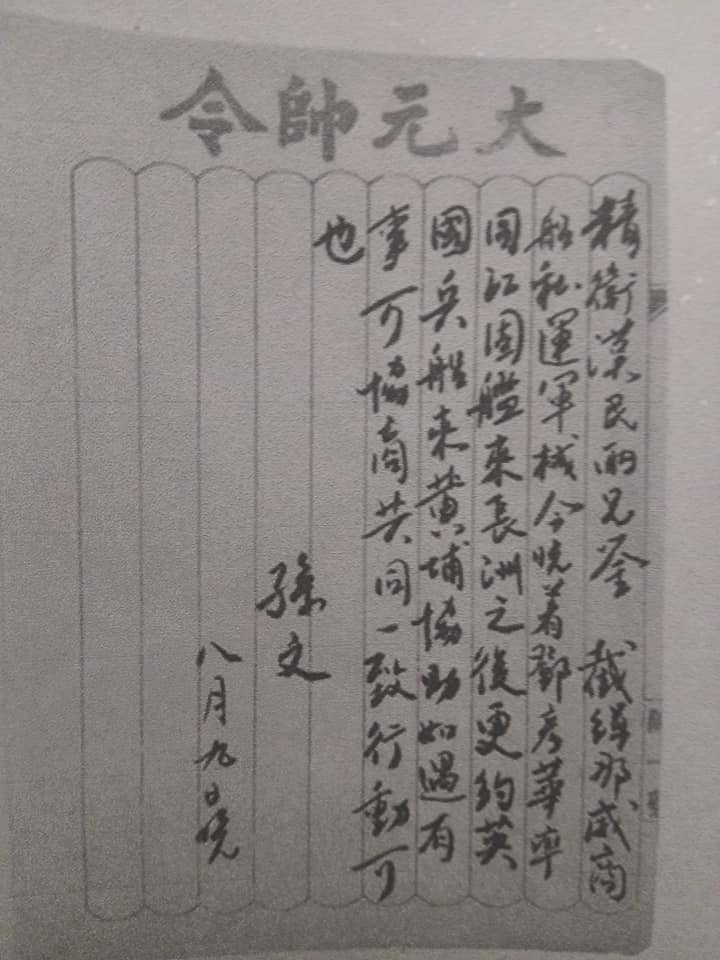 大元帥令
精衛漢民兩兄鑒 截緝那威商
船私運軍械今晚着鄧彥華率
同江固艦来長洲之後更約英
國兵船来黃埔協助如遇有
事可協商共同一致行動可
也
孫文
八月九日晚